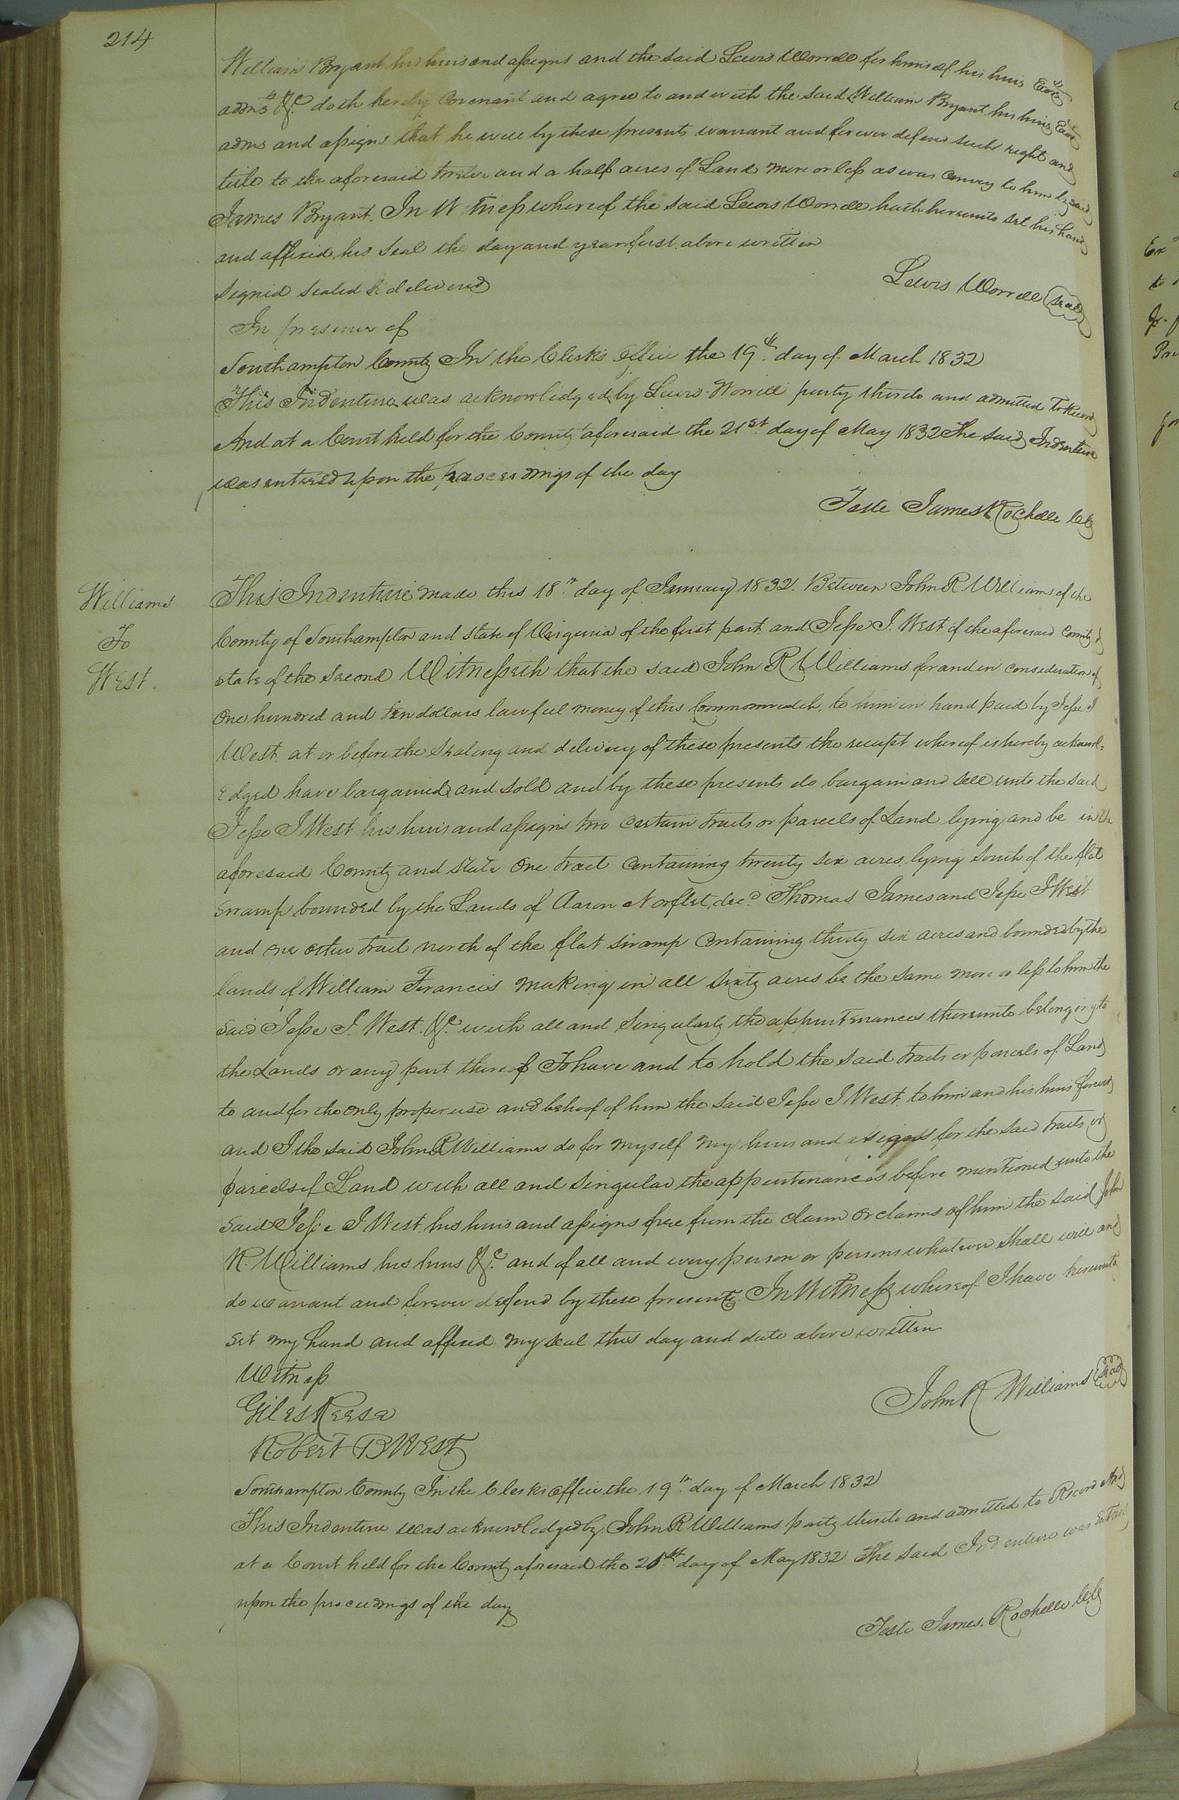 214
William Bryant his heirs and assigns and the said Lewis Worrell for himself his heirs Exors
admrs &c. doth hereby Covenant and agree to and with the said William Bryant his heirs Exors
adms and assigns that he will by these presents warrant and forever defend such right and
title to the aforesaid twelve and a half acres of Land more or less as was Convey to him by said
James Bryant. In Witness whereof the said Lewis Worrell hath hereunto set his hand
and affixed his Seal the day and year first above written
Signed Sealed & delivered
Lewis Worrell (seal)
In presence of
Southampton County In the Clerk's Office the 19th day of March 1832
This Indenture was acknowledged by Lewis Worrell party thereto and admitted To Record
And at a Court held for the County aforesaid the 21st day of May 1832 The said Indenture
was entered upon the proceedings of the day
Teste James Rochelle Clk
Williams
To
West.
This Indenture made this 18th day of January 1832. Between John R Williams of the
County of Southampton and State of Virginia of the first part and Jesse J. West of the aforesaid County &
State of the Second Witnesseth that the said John R Williams for and in consideration of
One hundred and ten dollars lawfull money of this Commonwealth, to him in hand paid by Jesse J
West, at or before the Sealing and delivery of these presents the receipt whereof is hereby acknowl-
edged have bargained and sold and by these presents do bargain and sell unto the said
Jesse J West his heirs and assigns two certain tracts or parcels of Land lying and be in the
aforesaid County and State One tract Containing twenty six acres, lying South of the flat
Swamp bounded by the Lands of Aaron Norflet, decd Thomas James and Jesse J West
and one other tract north of the flat swamp Containing thirty six acres and bounded by the
lands of William Francis making in all Sixty acres be the same more or less to him the
Said Jesse J. West. &c. with all and Singularly the appurtenances thereunto belonging to
the Lands or any part thereof To have and to hold the said tracts or parcels of Land
to and for the only proper use and behoof of him the said Jesse J West to him and his heirs forever
and I the said John R Williams do for myself my heirs and assigns for the said tracts or
parcels of Land with all and Singular the appurtenances before mentioned unto the
Said Jesse J West his heirs and assigns free from the claim or claims of him the said John
R. Williams his heirs &c and of all and every person or persons whatever shall will and
do warrant and forever defend by these presents In Witness whereof I have hereunto
Set my hand and affixed my seal this day and date above written
Witness
John R Williams (seal)
Giles Reese
Robert B West
Southampton County In the Clerks office the 19th day of March 1832
This Indenture was acknowledged by John R Williams party thereto and admitted to Record And
at a Court held for the County aforesaid the 21st day of May 1832 The said Indenture was entered
upon the proceedings of the day
Teste James Rochelle Clk